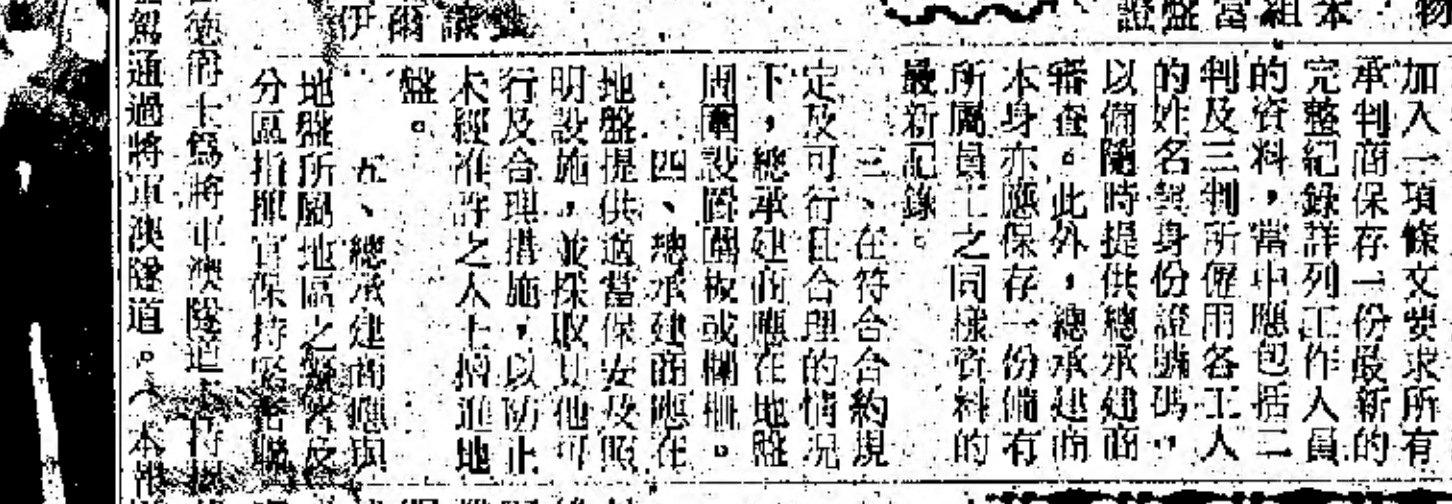 加入一項條文要求所有
承判商保存一份最新的
完整紀錄詳列工作人員
的資料，當中應包括二
判及三判所僱用各工人
的姓名與身份證號碼，
以備隨時提供總承建商
審查。此外，總承建商
本身亦應保存一份備有
所屬員工之同樣資料的
最新記錄。
三、在符合合約規
定及可行且合理的情況
下，總承建商應在地盤
周圍設置圍板或欄柵。
四、總承建商應在
地盤提供適當保安及照
明設施，並採取其他可
行及合理措施，以防止
未經准許之人士擅進地
盤。
五、總承建商應與
地盤所屬地區之警署及
分區指揮官保持密切聯
德爵士為將軍澳隧道主持
駕通過將軍澳隧道。（本報